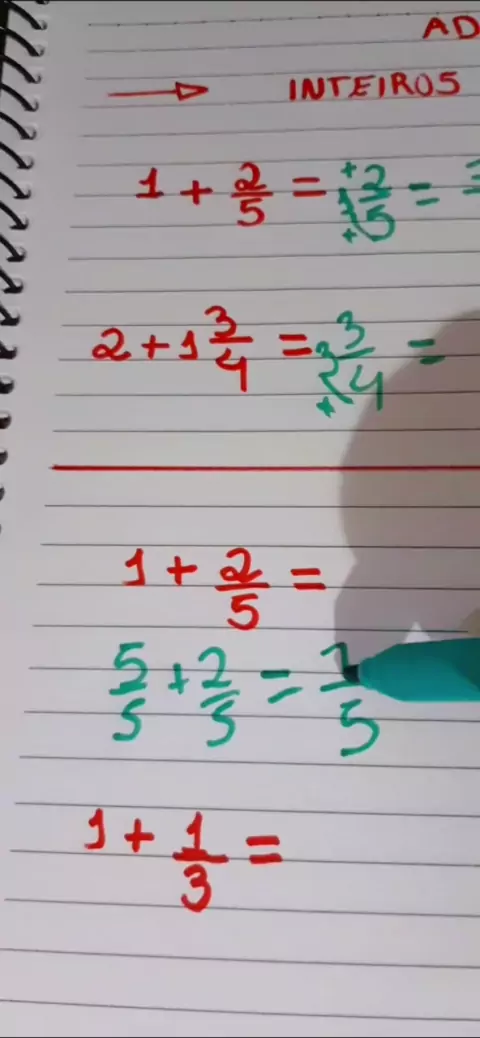 AD
INTEIROS
1 + 2/5 = 1 2/5 =
2 + 1 3/4 = 3 3/4 =
1 + 2/5 =
5/5 + 2/5 = 7/5
1 + 1/3 =